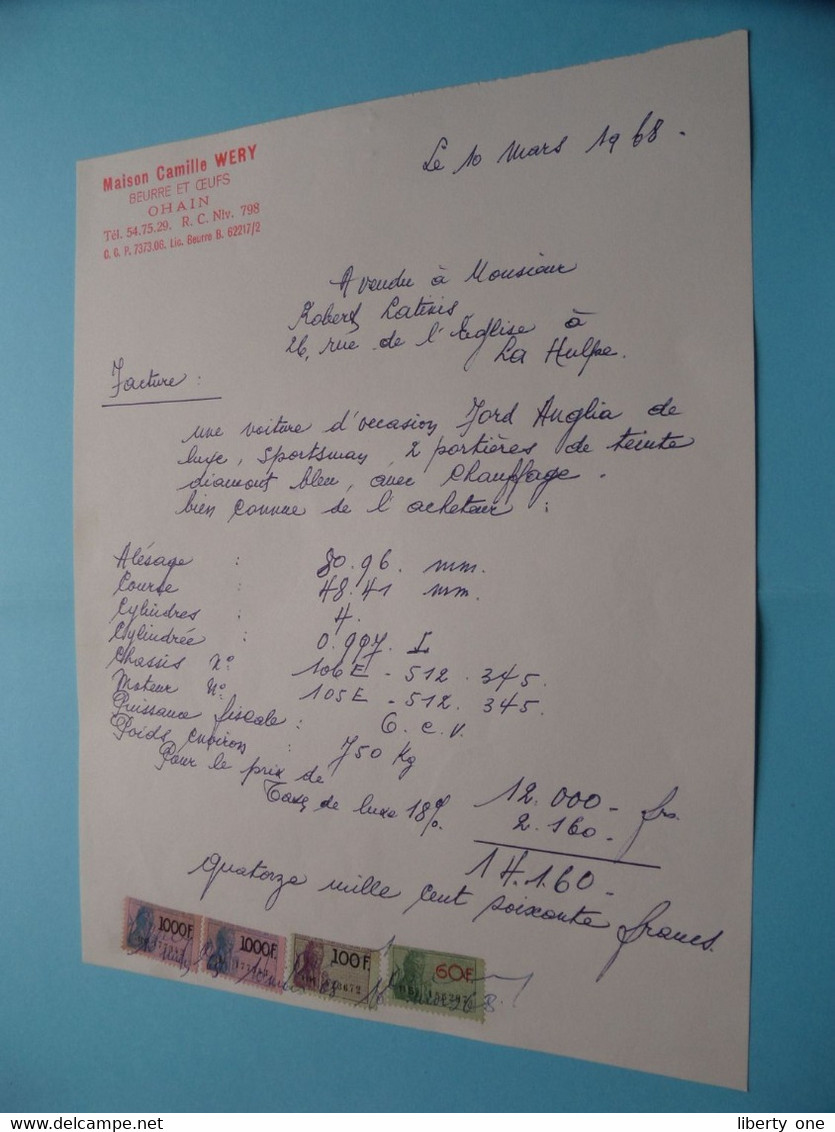 Maison Camille WERY
BEURRE ET ŒUFS
OHAIN
Tél. 54.75.29. R. C. Niv. 798
C. C. P. 7373.06. Lic. Beurre B. 62217/2
Le 10 Mars 1968.
A vendu à Monsieur
Robert Latinis
26, rue de l'Eglise à
La Hulpe.
Facture :
une voiture d'occasion Ford Anglia de
luxe, Sportsman 2 portières de teinte
diamont bleu, avec Chauffage.
bien connue de l'acheteur :
Alésage : 80.96. mm.
Course : 48.41 mm.
Cylindres : 4.
Cylindrée : 0.997. L
Chassis N° 106E - 512. 345.
Moteur N° 105E - 512. 345.
Puissance fiscale : 6. c. v.
Poids environ : 750 Kg
Pour le prix de 12.000 - frs.
Taxe de luxe 18% 2.160 -
14.160 -
quatorze mille cent soixante francs.
1000F. 1000F. 100F. 60F.
liberty one